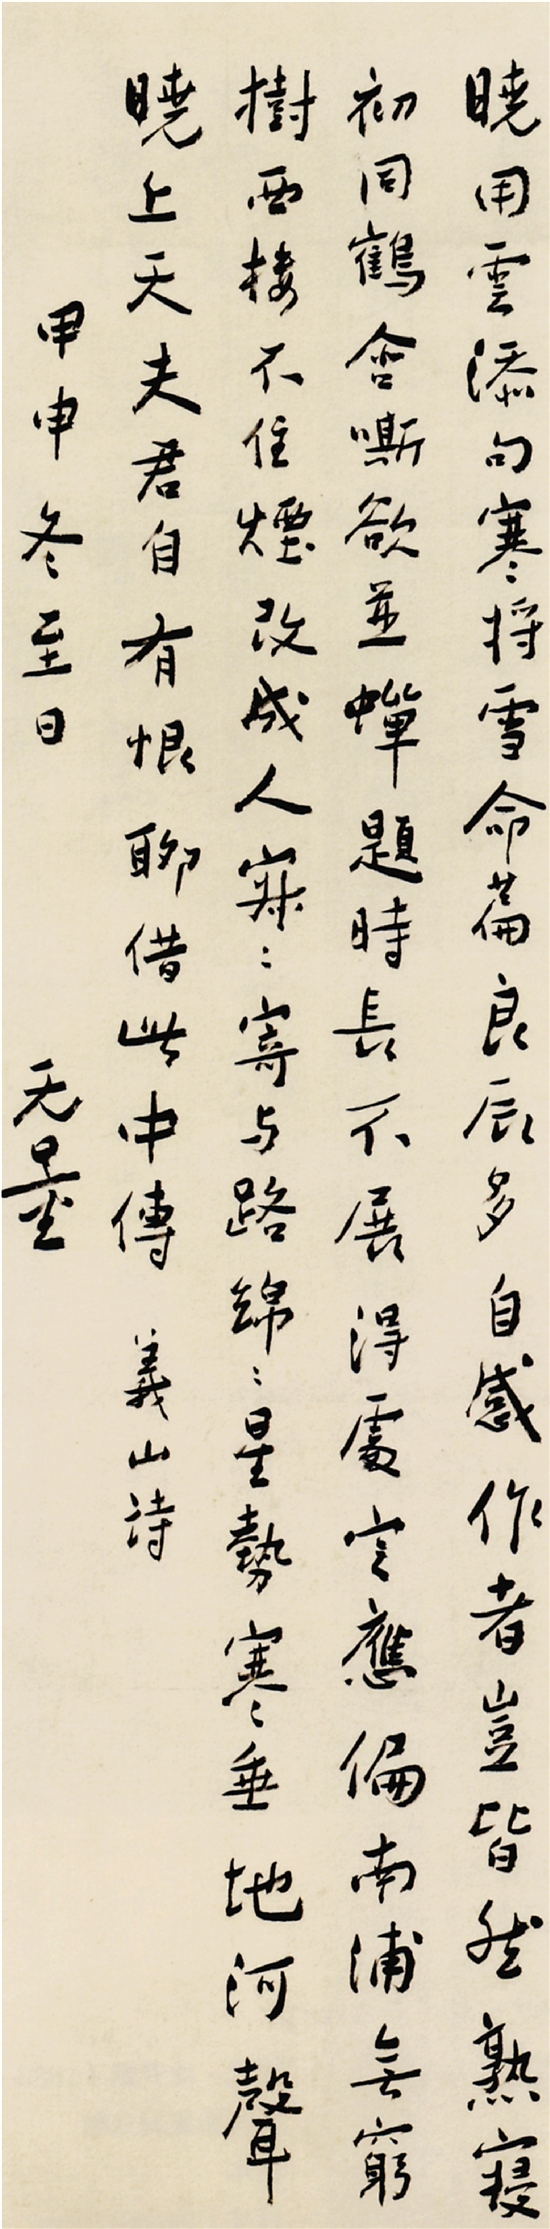 曉用雲添句寒將雪命篇良辰多自感作者豈皆然熟寢
初同鶴含嘶欲並蟬題時長不展得處定應偏南浦無窮
樹西樓不住煙改成人寂〻寄与路綿〻星勢寒垂地河聲
曉上天夫君自有恨聊借此中傳 義山詩
甲申冬至日 无量